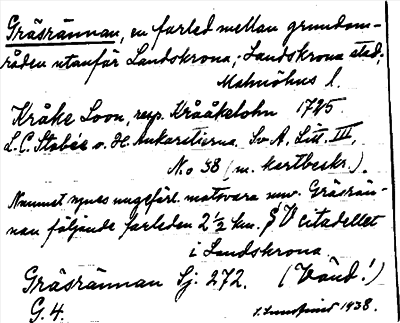 Gräsrännan, en farled mellan grundom-
råden utanför Landskrona, Landskrona stad,
Malmöhus l.
Kråke Loon, resp. Krååkelohn 1725
L. C. Stobée o. H. Ankarstierna. Sv A. Litt. III,
N:o 58 (m. kartbeskr.).
Namnet synes ungefärl. motsvara nuv. Gräsrän-
nan följande farleden 2 1/2 km. S V citadellet
i Landskrona
Gräsrännan Sj. 272. (Vänd!)
G. 4. 1938.